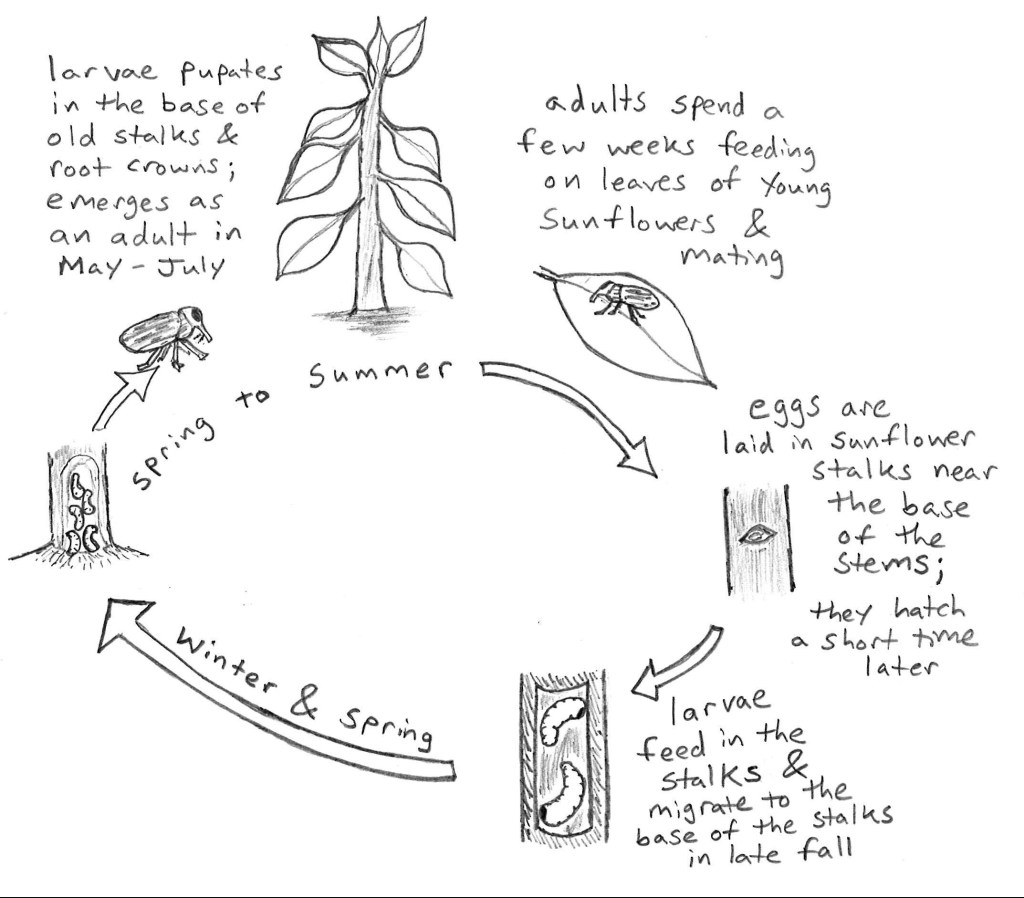 larvae pupates
in the base of
old stalks &
root crowns;
emerges as
an adult in
May - July
adults spend a
few weeks feeding
on leaves of Young
Sunflowers &
mating
Spring to Summer
eggs are
laid in sunflower
stalks near
the base
of the
stems;
they hatch
a short time
later
larvae
feed in the
stalks &
migrate to the
base of the stalks
in late fall
Winter & spring